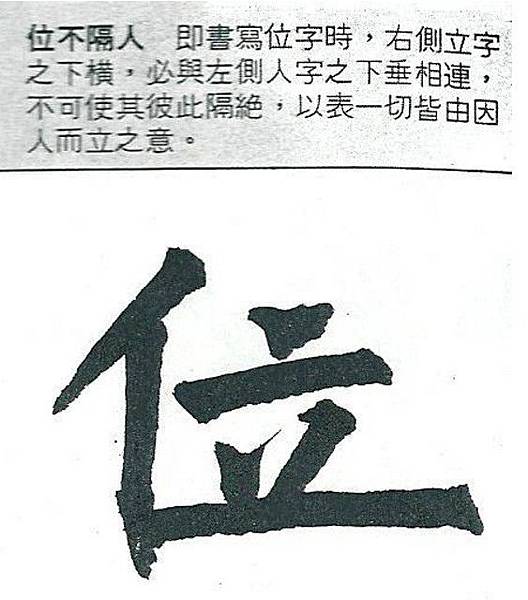 位不隔人　即書寫位字時，右側立字
之下橫，必與左側人字之下垂相連，
不可使其彼此隔絕，以表一切皆由因
人而立之意。
位